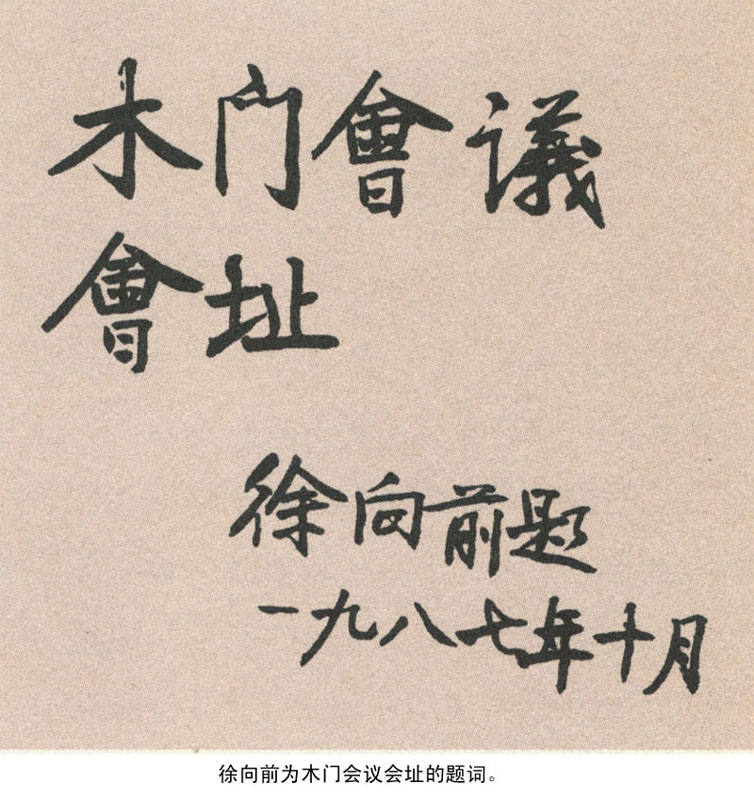 木门會议
會址
徐向前题
一九八七年十月
徐向前为木门会议会址的题词。